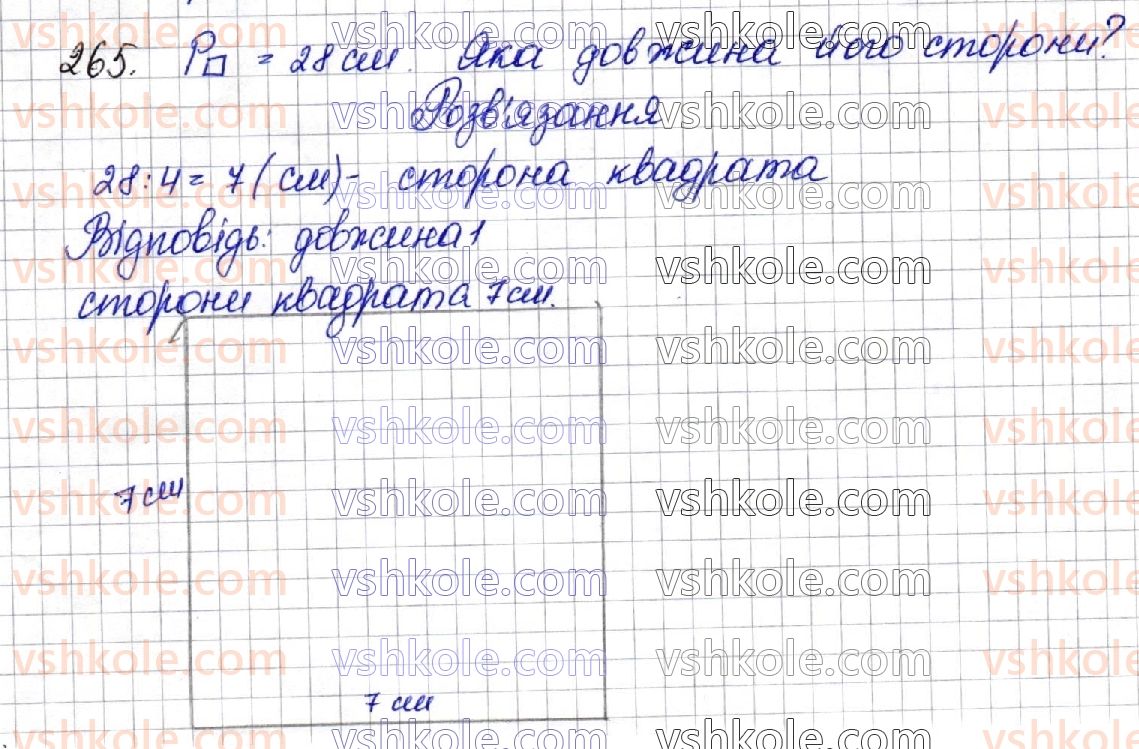 265. P□ = 28 см. Яка довжина його сторони?
Розв'язання
28:4=7(см)- сторона квадрата
Відповідь: довжина 1
сторони квадрата 7 см.
7 см
7 см
vshkole.com